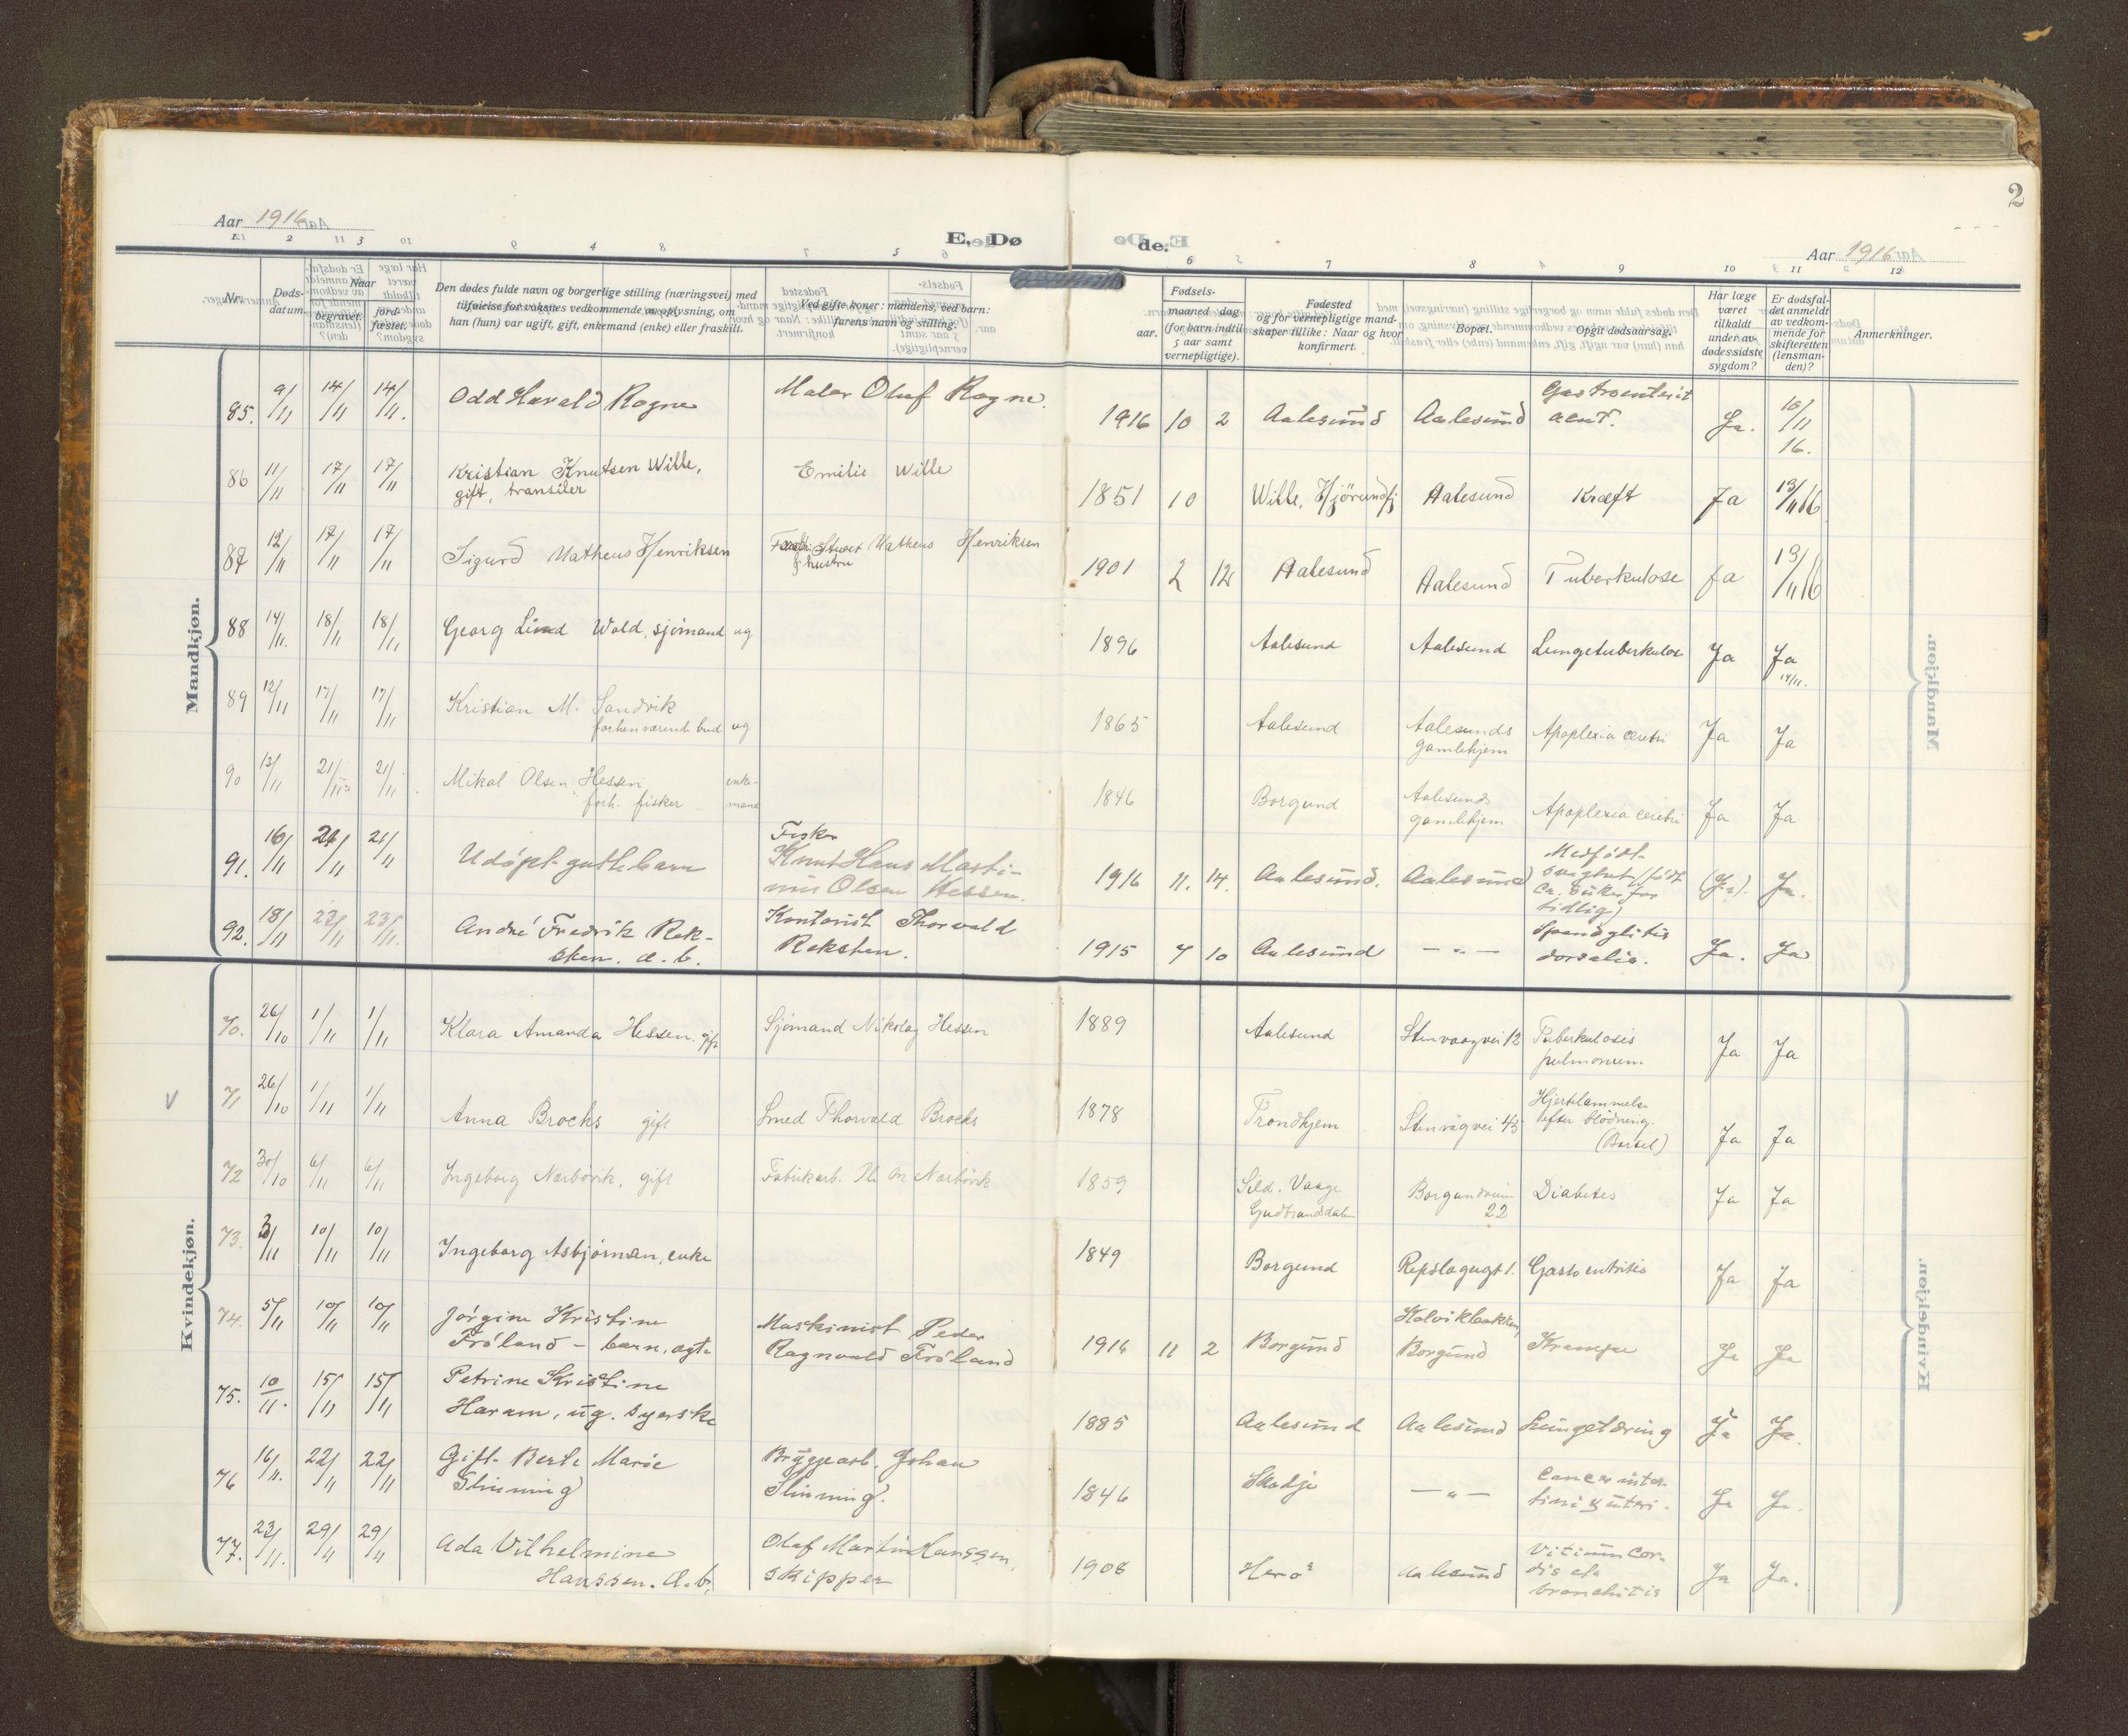 2
Aar 1916
E. Døde.
Aar 1916
2 3 4 5 6 7 8 9 10 11 12
Nr. Døds-datum. Naar begravet. jord-fæstet. Den dødes fulde navn og borgerlige stilling (næringsvei) med tilføielse for voksnes vedkommende av oplysning, om han (hun) var ugift, gift, enkemand (enke) eller fraskilt. Ved gifte koner: mandens, ved barn: farens navn og stilling. Fødsels- aar. maaned dag (for barn indtil 5 aar samt vernepligtige). Fødested og for vernepligtige mandskaper tillike: Naar og hvor konfirmert. Bopæl. Opgit dødsaarsag. Har læge været tilkaldt under avdødes sidste sygdom? Er dødsfaldet anmeldt av vedkommende for skifteretten (lensmanden)? Anmerkninger.
Mandkjøn.
85. 9/11 14/11 14/11. Odd Harald Rogne Maler Oluf Rogne. 1916 10 2 Aalesund Aalesund Gastroenterit acut. Ja. 10/11 16.
86 11/11 17/11 17/11 Kristian Knutsen Wille, gift, transiler Emilie Wille 1851 10 Wille, Hjørundfj Aalesund Kræft Ja 13/11 16
87 12/11 17/11 17/11 Sigurd Matheus Henriksen Matheus Henriksen & hustru 1901 2 12 Aalesund Aalesund Tuberkulose Ja 13/11 16
88 14/11. 18/11 18/11 Georg Lind Wold, sjømand ug 1896 Aalesund Aalesund Lungetuberkulose Ja Ja 14/11.
89 12/11 17/11 17/11 Kristian M. Sandvik forhenværende bud ug 1865 Aalesund Aalesunds gamlehjem Apoplexia cerebri Ja Ja
90 13/11 21/11 21/11 Mikal Olsen Hessen forh. fisker enkemand 1846 Borgund Aalesunds gamlehjem Apoplexia cerebri Ja Ja
91. 16/11 21/11 21/11 Udøpt guttebarn Fisker Knut Hans Martinus Olsen Hessen. 1916 11. 14. Aalesund. Aalesund Medfødt svaghet (født ca. uker for tidlig) (Ja). Ja.
92. 18/11 23/11 23/11. André Fredrik Reksten. æ. b. Kontorist Thorvald Reksten. 1915 7 10 Aalesund — „ — Spondylitis dorsalis. Ja. Ja
Kvindekjøn.
70. 26/10 1/11 1/11 Klara Amanda Hessen. gift Sjømand Nikolay Hessen 1889 Aalesund Stenvaagvei 12 Tuberkulosis pulmonum Ja Ja
V 71 26/10 1/11 1/11 Anna Brochs gift Smed Thorvald Brochs 1878 Trondhjem Stenvågvei 43 Hjertelammelse efter blödning. (Barsel) Ja Ja
72 30/10 6/11 6/11 Ingeborg Nærbövik, gift Fabrikarb. M Nærbövik 1859 Vaage Gudbrandsdalen Borgundveien 22 Diabetes Ja Ja
73. 3/11 10/11 10/11 Ingeborg Asbjørnsen, enke 1849 Borgund Repslagergt 1. Gastroentritis Ja Ja
74. 5/11 10/11 10/11 Jørgine Kristine Frøland – barn, ægte Maskinist Peder Ragnvald Frøland 1916 11 2 Borgund Kolvikbakken, Borgund Krampe Ja Ja
75. 10/11. 15/11 15/11 Petrine Kristine Haram, ug. syerske 1885 Aalesund Aalesund Lungetæring Ja Ja.
76 16/11. 22/11 22/11 Gift Berte Marie Slinning Bryggearb. Johan Slinning. 1846 Skodje — „ — Cancer intestini & uteri. Ja Ja.
77. 23/11. 29/11 29/11 Ada Vilhelmine Hanssen. æ. b. Olaf Martin Hanssen, skipper 1908 Herö Aalesund Vitium cordis et. bronchitis Ja Ja.